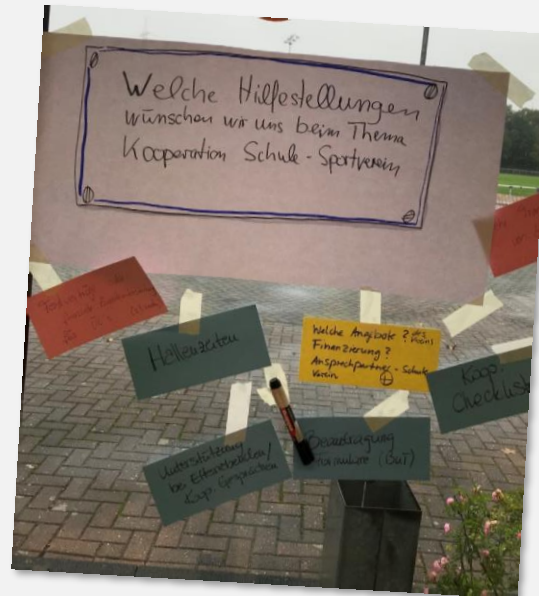 Welche Hilfestellungen
wünschen wir uns beim Thema
Kooperation Schule - Sportverein
Hallenzeiten
Welche Angebote? des Vereins
Finanzierung?
Ansprechpartner - Schule
Verein
Koop.
Checkliste
Unterstützung
bei Elternabenden/
Koop. Gesprächen
Beantragung
Formulare (BuT)